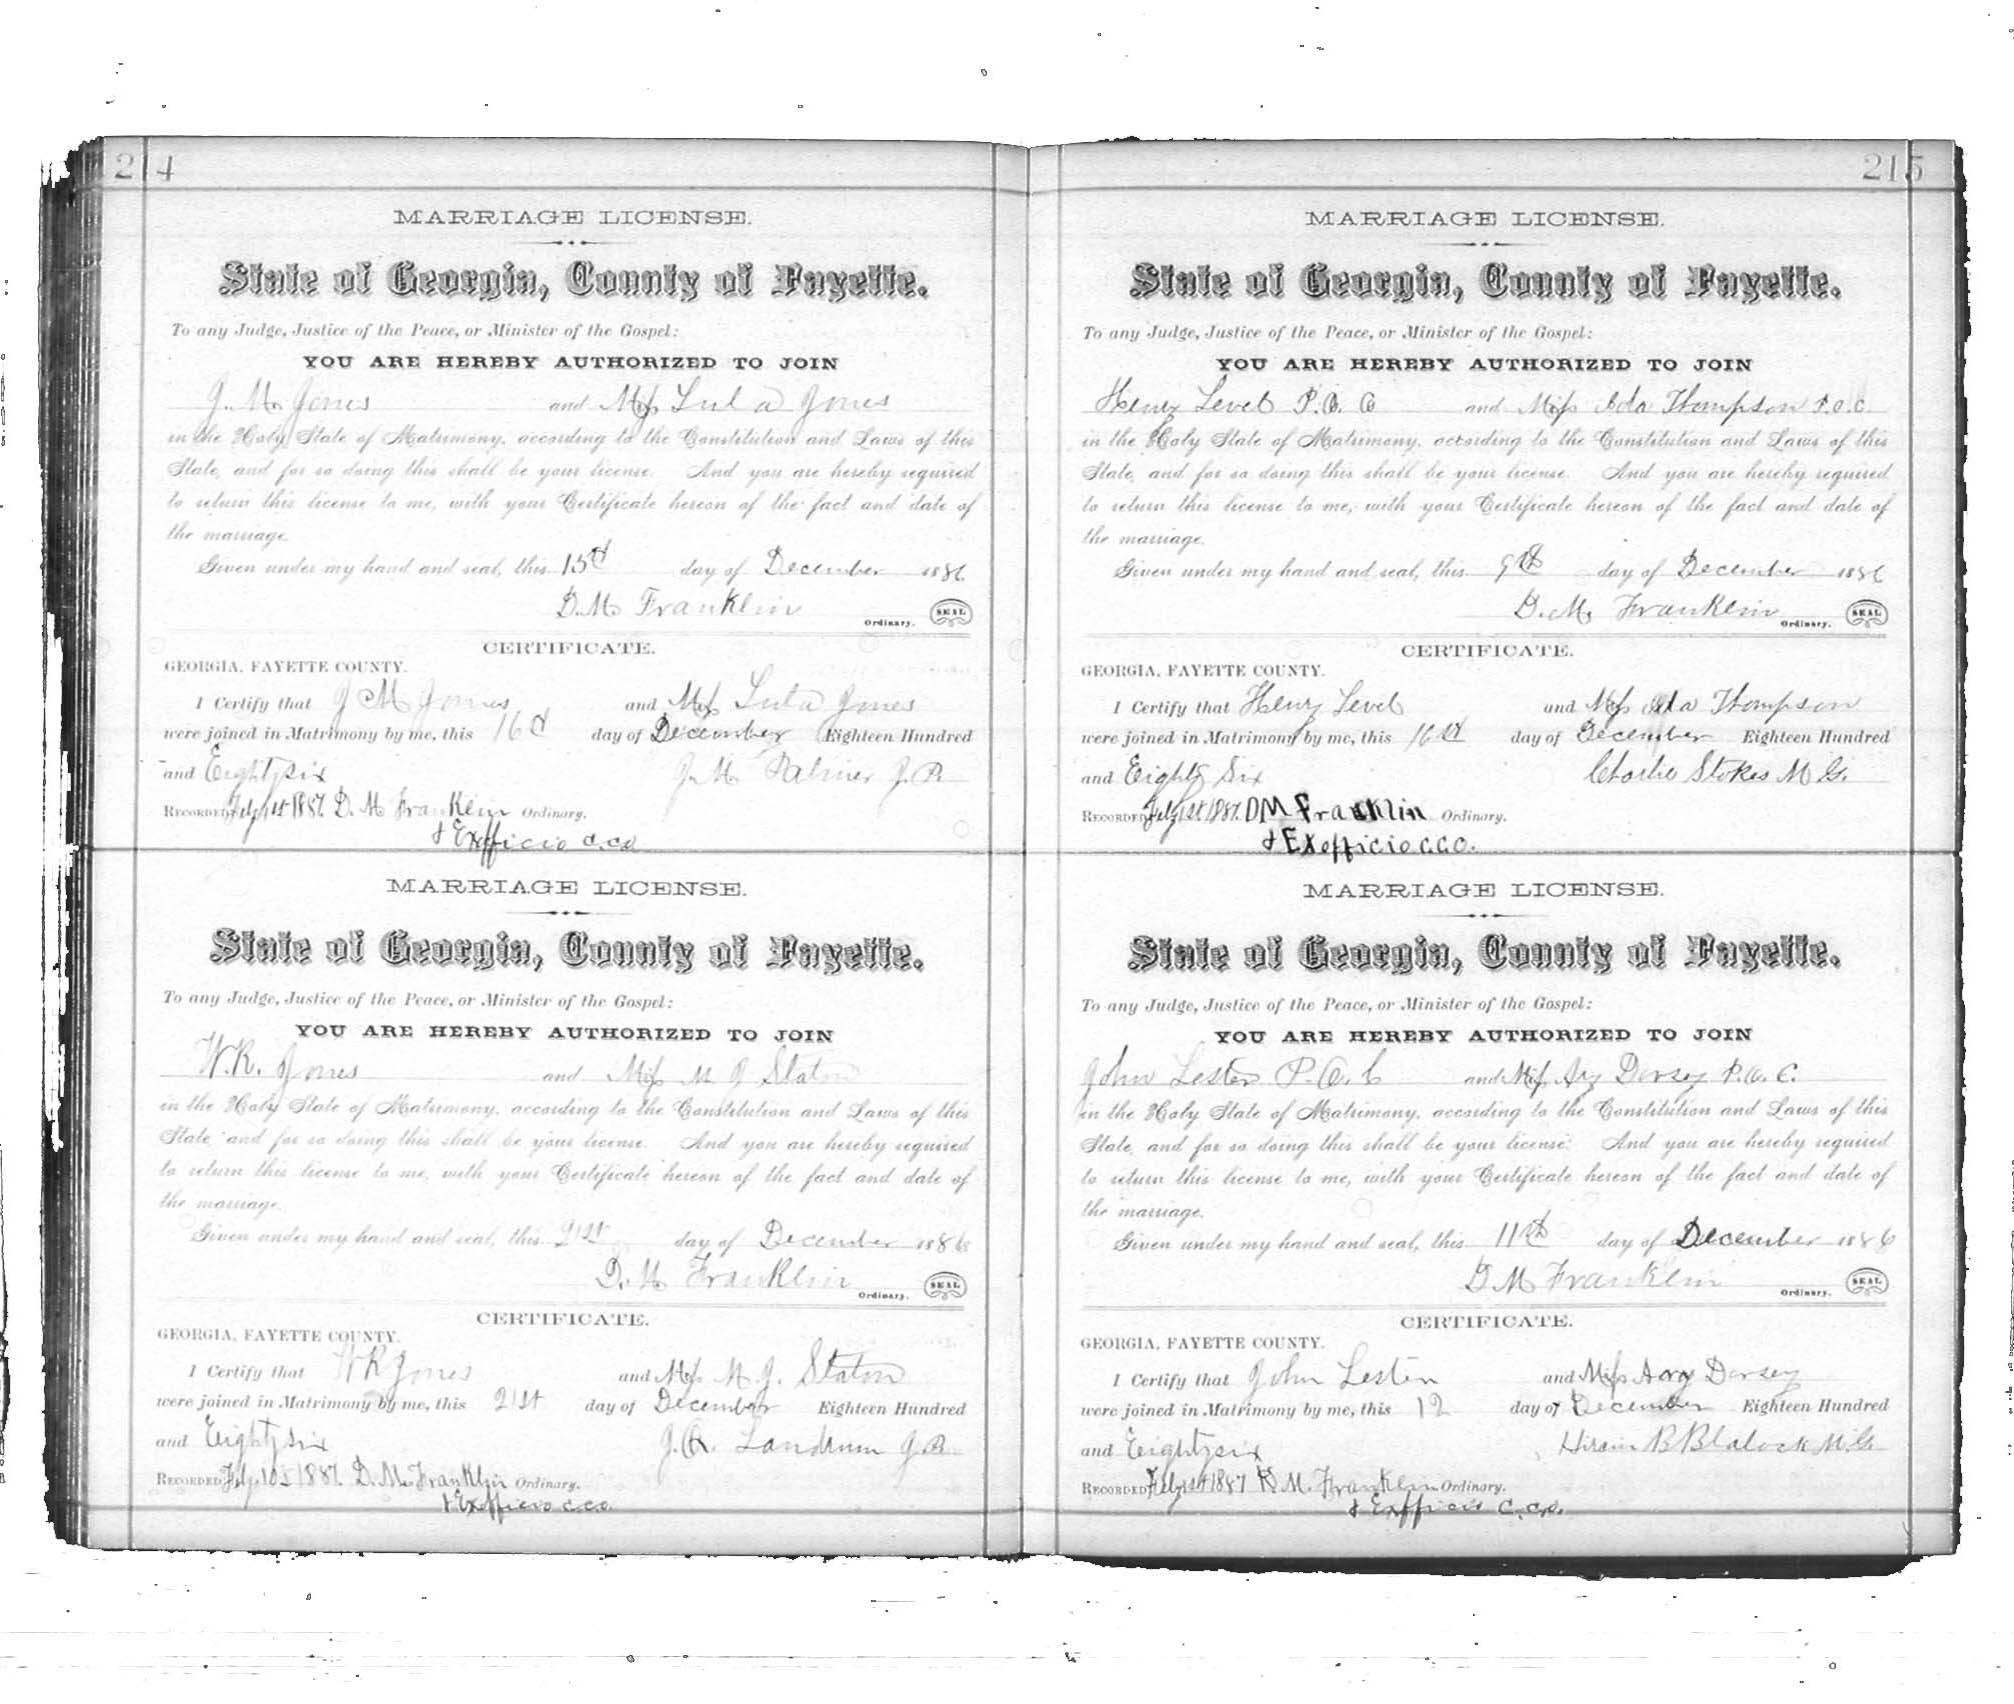 214
MARRIAGE LICENSE.
State of Georgia, County of Fayette.
To any Judge, Justice of the Peace, or Minister of the Gospel:
YOU ARE HEREBY AUTHORIZED TO JOIN
J. M. Jones and Miss Lula Jones
in the Holy State of Matrimony, according to the Constitution and Laws of this
State, and for so doing this shall be your license. And you are hereby required
to return this license to me, with your Certificate hereon of the fact and date of
the marriage.
Given under my hand and seal, this day of December 1886
D. M. Franklin
Ordinary. SEAL
CERTIFICATE.
GEORGIA, FAYETTE COUNTY.
I Certify that J M Jones and Miss Lula Jones
were joined in Matrimony by me, this 16 day of December Eighteen Hundred
and Eighty six J. M. Palmer J. P.
RECORDED Feby 1st 1887. D. M. Franklin Ordinary.
& Exofficio c.c.o.
MARRIAGE LICENSE.
State of Georgia, County of Fayette.
To any Judge, Justice of the Peace, or Minister of the Gospel:
YOU ARE HEREBY AUTHORIZED TO JOIN
W. R. Jones and Miss M J Staton
in the Holy State of Matrimony, according to the Constitution and Laws of this
State, and for so doing this shall be your license. And you are hereby required
to return this license to me, with your Certificate hereon of the fact and date of
the marriage.
Given under my hand and seal, this 21st day of December 1886
D. M Franklin
Ordinary. SEAL
CERTIFICATE.
GEORGIA, FAYETTE COUNTY.
I Certify that W R Jones and Miss M. J. Staton
were joined in Matrimony by me, this 21st day of December Eighteen Hundred
and Eighty six Landrum J P.
RECORDED 1887. D. M. Franklin Ordinary.
& Exofficio c.c.o.
215
MARRIAGE LICENSE.
State of Georgia, County of Fayette.
To any Judge, Justice of the Peace, or Minister of the Gospel:
YOU ARE HEREBY AUTHORIZED TO JOIN
Henry Level P. O. C and Miss Ada Thompson P. O. C.
in the Holy State of Matrimony, according to the Constitution and Laws of this
State, and for so doing this shall be your license. And you are hereby required
to return this license to me, with your Certificate hereon of the fact and date of
the marriage.
Given under my hand and seal, this 9th day of December 1886
D. M. Franklin
Ordinary. SEAL
CERTIFICATE.
GEORGIA, FAYETTE COUNTY.
I Certify that Henry Level and Miss Ada Thompson
were joined in Matrimony by me, this 16th day of December Eighteen Hundred
and Eighty Six Charlie Stokes M. G.
RECORDED Feby 1st 1887. D M Franklin Ordinary.
& Exofficio c.c.o.
MARRIAGE LICENSE.
State of Georgia, County of Fayette.
To any Judge, Justice of the Peace, or Minister of the Gospel:
YOU ARE HEREBY AUTHORIZED TO JOIN
John Lester P. O. C and Miss Ary Dorsey P. O. C.
in the Holy State of Matrimony, according to the Constitution and Laws of this
State, and for so doing this shall be your license. And you are hereby required
to return this license to me, with your Certificate hereon of the fact and date of
the marriage.
Given under my hand and seal, this 11th day of December 1886
D M Franklin
Ordinary. SEAL
CERTIFICATE.
GEORGIA, FAYETTE COUNTY.
I Certify that John Lester and Miss Dorsey
were joined in Matrimony by me, this 12 day of December Eighteen Hundred
and Eighty six Hiram B Blalock M. G.
RECORDED Feby 1st 1887 D M. Franklin Ordinary.
& Exofficio c.c.o.